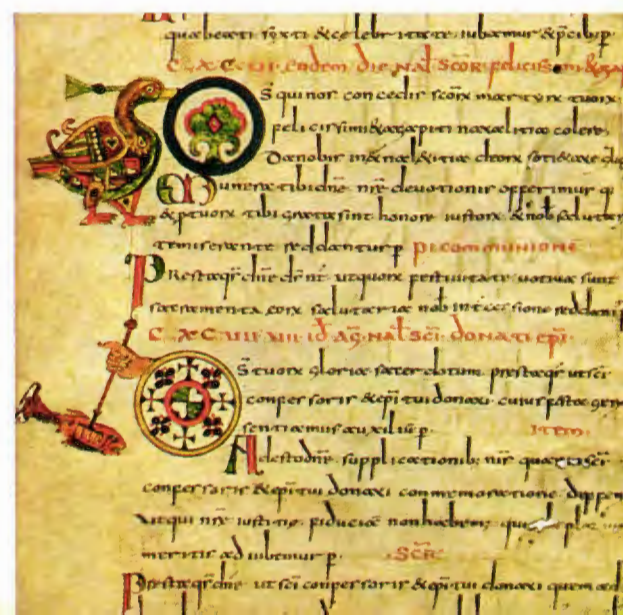 quae beati syxti & celebritate iubamur & p̄cib; p̄.
C. XC. VII. eodem die nal̄ scōr feliciss̄imi & aga
D̄s qui nos concedis scōrx martyrx tuorx
felicissimi & agapiti natalitia colere,
Da nobis in &nal&itia deorx soti&ate
Munera tibi dn̄e nr̄e devotionis offerimus q
& p tuorx tibi grata sint honore iustorx & nob salutar
te miserante reddantur p. P̄ COMMUNIONE
Prestaq̄r dn̄e ds̄ nr̄ ut quorx festivitate votiva sunt
sacramenta eorx salutaria nob int̄cessione reddant̄
C. XC. VIII. VIII id̄ aḡ nal̄ sc̄i donati ep̄i.
D̄s tuorx gloria sacerdotum prestaq̄r ut sc̄i
confessoris & ep̄i tui donati cuius festa ger
sentiamus auxiliū p. ITEM.
Adesto dn̄e supplicationib; nr̄is qua sc̄i
confessoris & ep̄i tui donati commemoratione
Xut qui nr̄e iustitie fiducia non habem; qui
meritis adiubemur p. SCR̄
Prestaq̄r dn̄e ut sc̄i confessoris & ep̄i tui donati quem